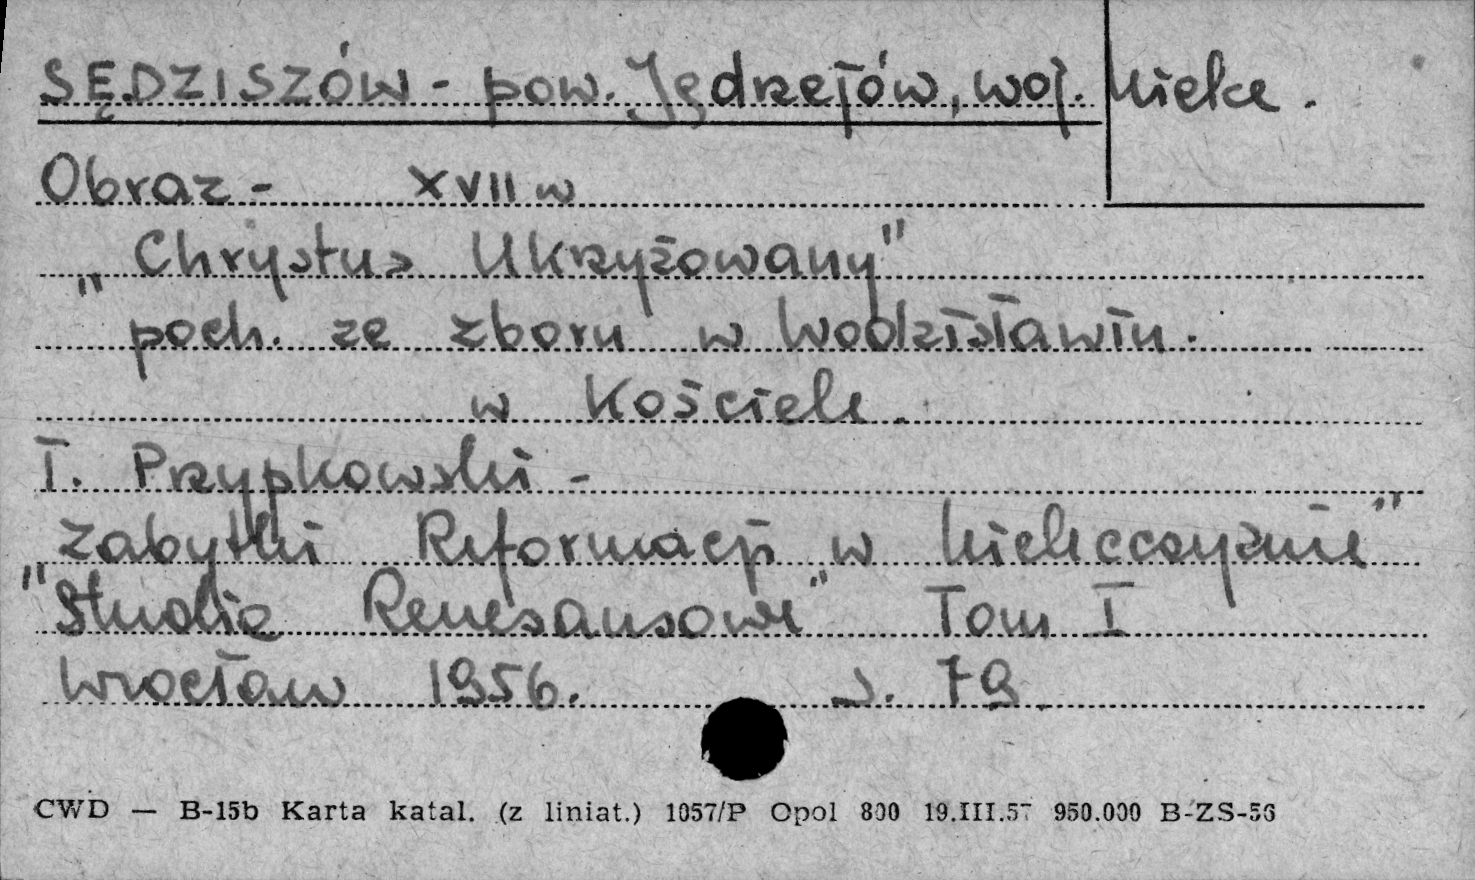 SĘDZISZÓW - pow. Jędrzejów, woj. Kielce.
Obraz - XVII w
„Chrystus Ukrzyżowany"
poch. ze zboru w Wodzisławiu.
w Kościele.
T. Przypkowski -
"Zabytki Reformacji w Kielecczyźnie"
"Studia Renesansowe" Tom I
Wrocław 1956. s. 79
CWD — B-15b Karta katal. (z liniat.) 1057/P Opol 800 19.III.57 950.000 B-ZS-56